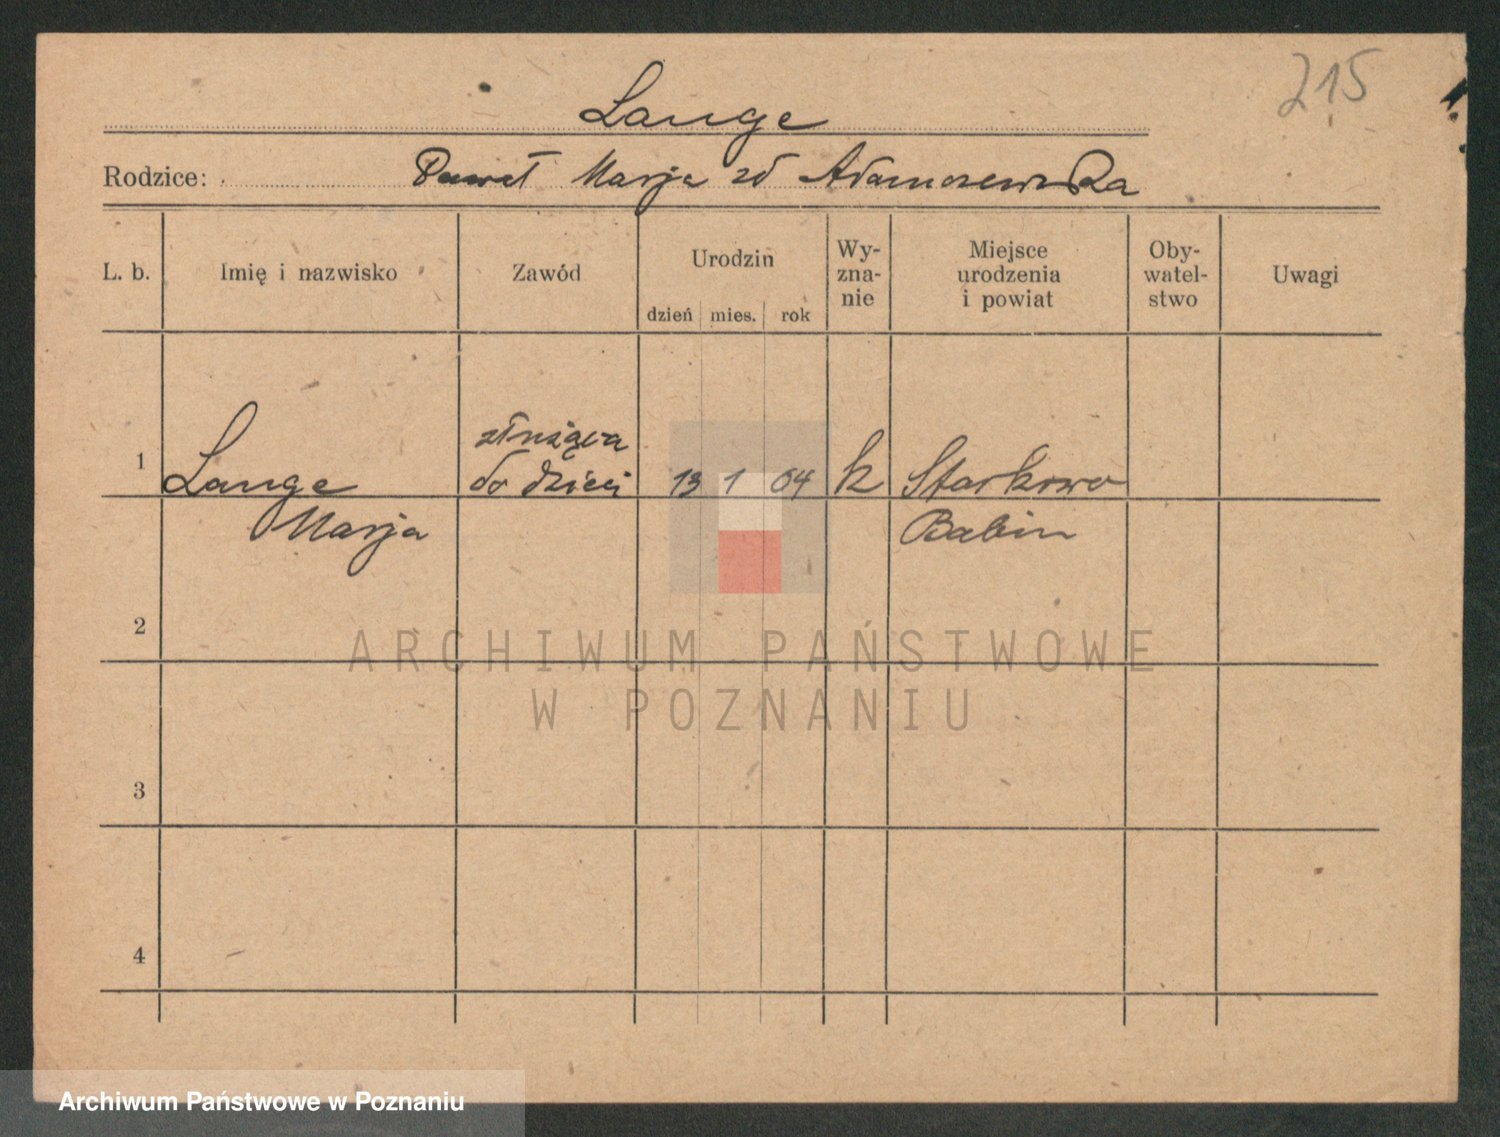 215
Lange
Rodzice: Paweł Marja zd Adamczewska
L. b. Imię i nazwisko Zawód Urodzin Wy- Miejsce Oby- Uwagi
zna- urodzenia watel-
nie i powiat stwo
dzień mies. rok
służąca
1 Lange do dzieci 13 1 04 k Starkowo
Marja Babin
2
ARCHIWUM PAŃSTWOWE
W POZNANIU
3
4
Archiwum Państwowe w Poznaniu